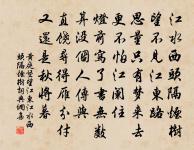 江水西頭隔煙樹
望不見江東路
思量只有夢來去
更不怕江闌住
燈前寫了書無數
算沒個人傳與
直饒尋得雁分付
又還是秋將暮
黃庭堅望江東江水西
頭隔煙樹詞